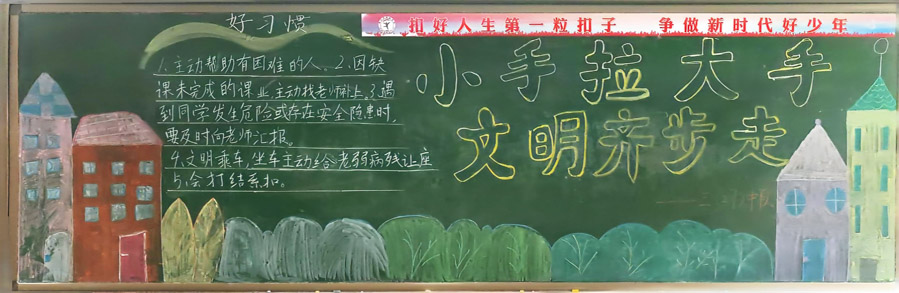 扣好人生第一粒扣子 争做新时代好少年
好习惯
1.主动帮助有困难的人。2.因缺
课未完成的课业主动找老师补上。3.遇
到同学发生危险或存在安全隐患时,
要及时向老师汇报。
4.文明乘车,坐车主动给老弱病残让座
5.会打结系扣。
小手拉大手
文明齐步走